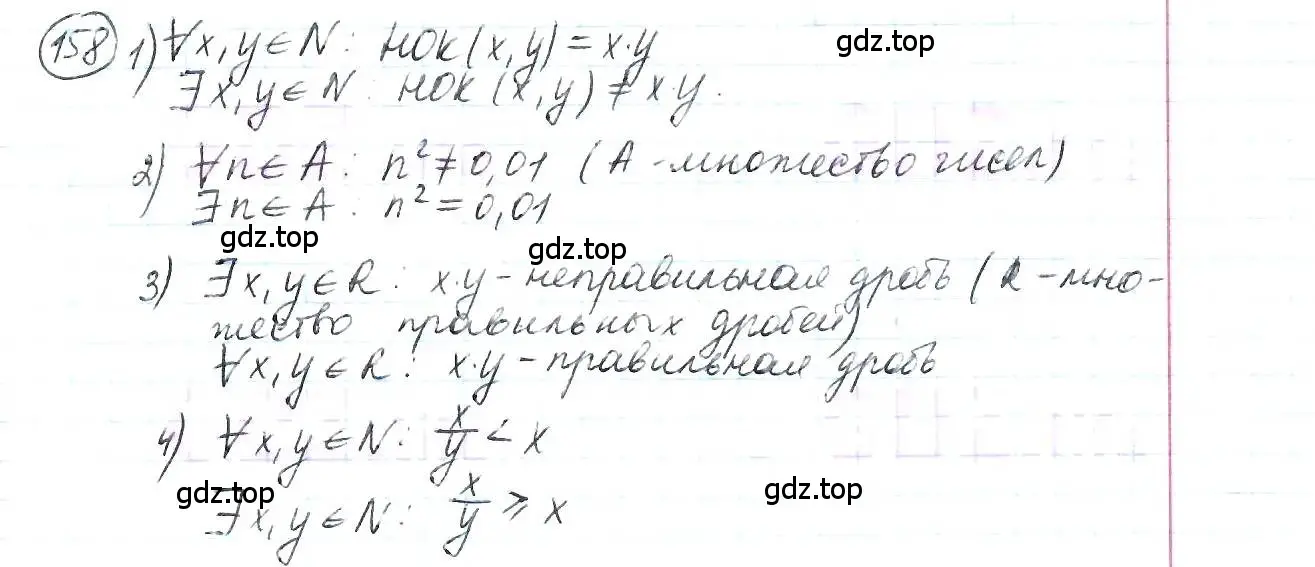 gdz.top
158 1) ∀x, y ∈ N: НОК(x, y) = x·y
∃x, y ∈ N: НОК(x, y) ≠ x·y.
2) ∀n ∈ A: n² ≠ 0,01 (A - множество чисел)
∃n ∈ A: n² = 0,01
gdz.top gdz.top
3) ∃x, y ∈ R: x·y - неправильная дробь (R - мно-
жество правильных дробей)
∀x, y ∈ R: x·y - правильная дробь
4) ∀x, y ∈ N: x/y < x
gdz.top gdz.top
∃x, y ∈ N: x/y ⩾ x